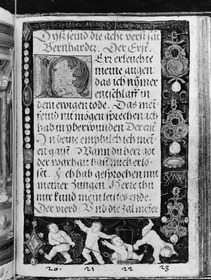 Dyß seind die acht verß sāt
Bernhardt. Der Erst.
Erleuchte
meine augen
das ich nÿmer
entschlaff in
dem ewigen tode. Das mei
feind nit mögen sprechen ich
hab in vberwunden Der ander
In deine empfilch ich mei
en gaist. Wann du herr got
der warhait hast mich erlo
set. Ich hab gesprochen mit
meiner zungen. Herre thu
mir kund mein letztes ende.
Der vierd Vnd die zal meiner
20. 21 22 23